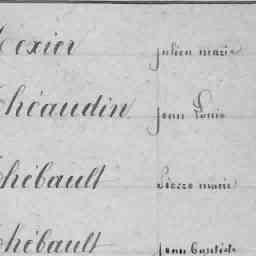 Texier julien marie
Théaudin jean Louis
Thébault Pierre marie
Thébault jean baptiste